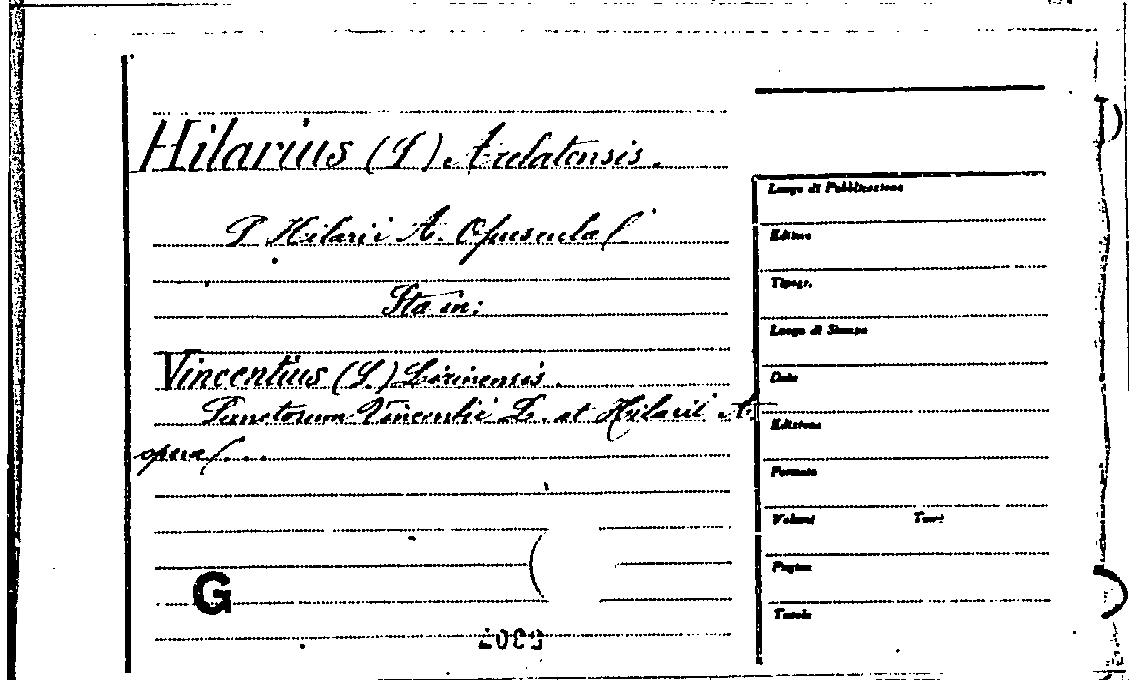 Hilarius (S) Arelatensis.
S Hilarii A. Opuscula (
Sta in:
Vincentius (S.) Lirinensis.
Sanctorum Vincentii L. et Hilarii A.
opera (...
G
Luogo di Pubblicazione
Editore
Tipogr.
Luogo di Stampa
Data
Edizione
Formato
Volumi Tomi
Pagine
Tavole